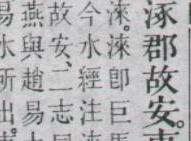 涿郡故安。
淶。淶卽巨
今水經注
故安、二志
燕與趙易
易水所出。